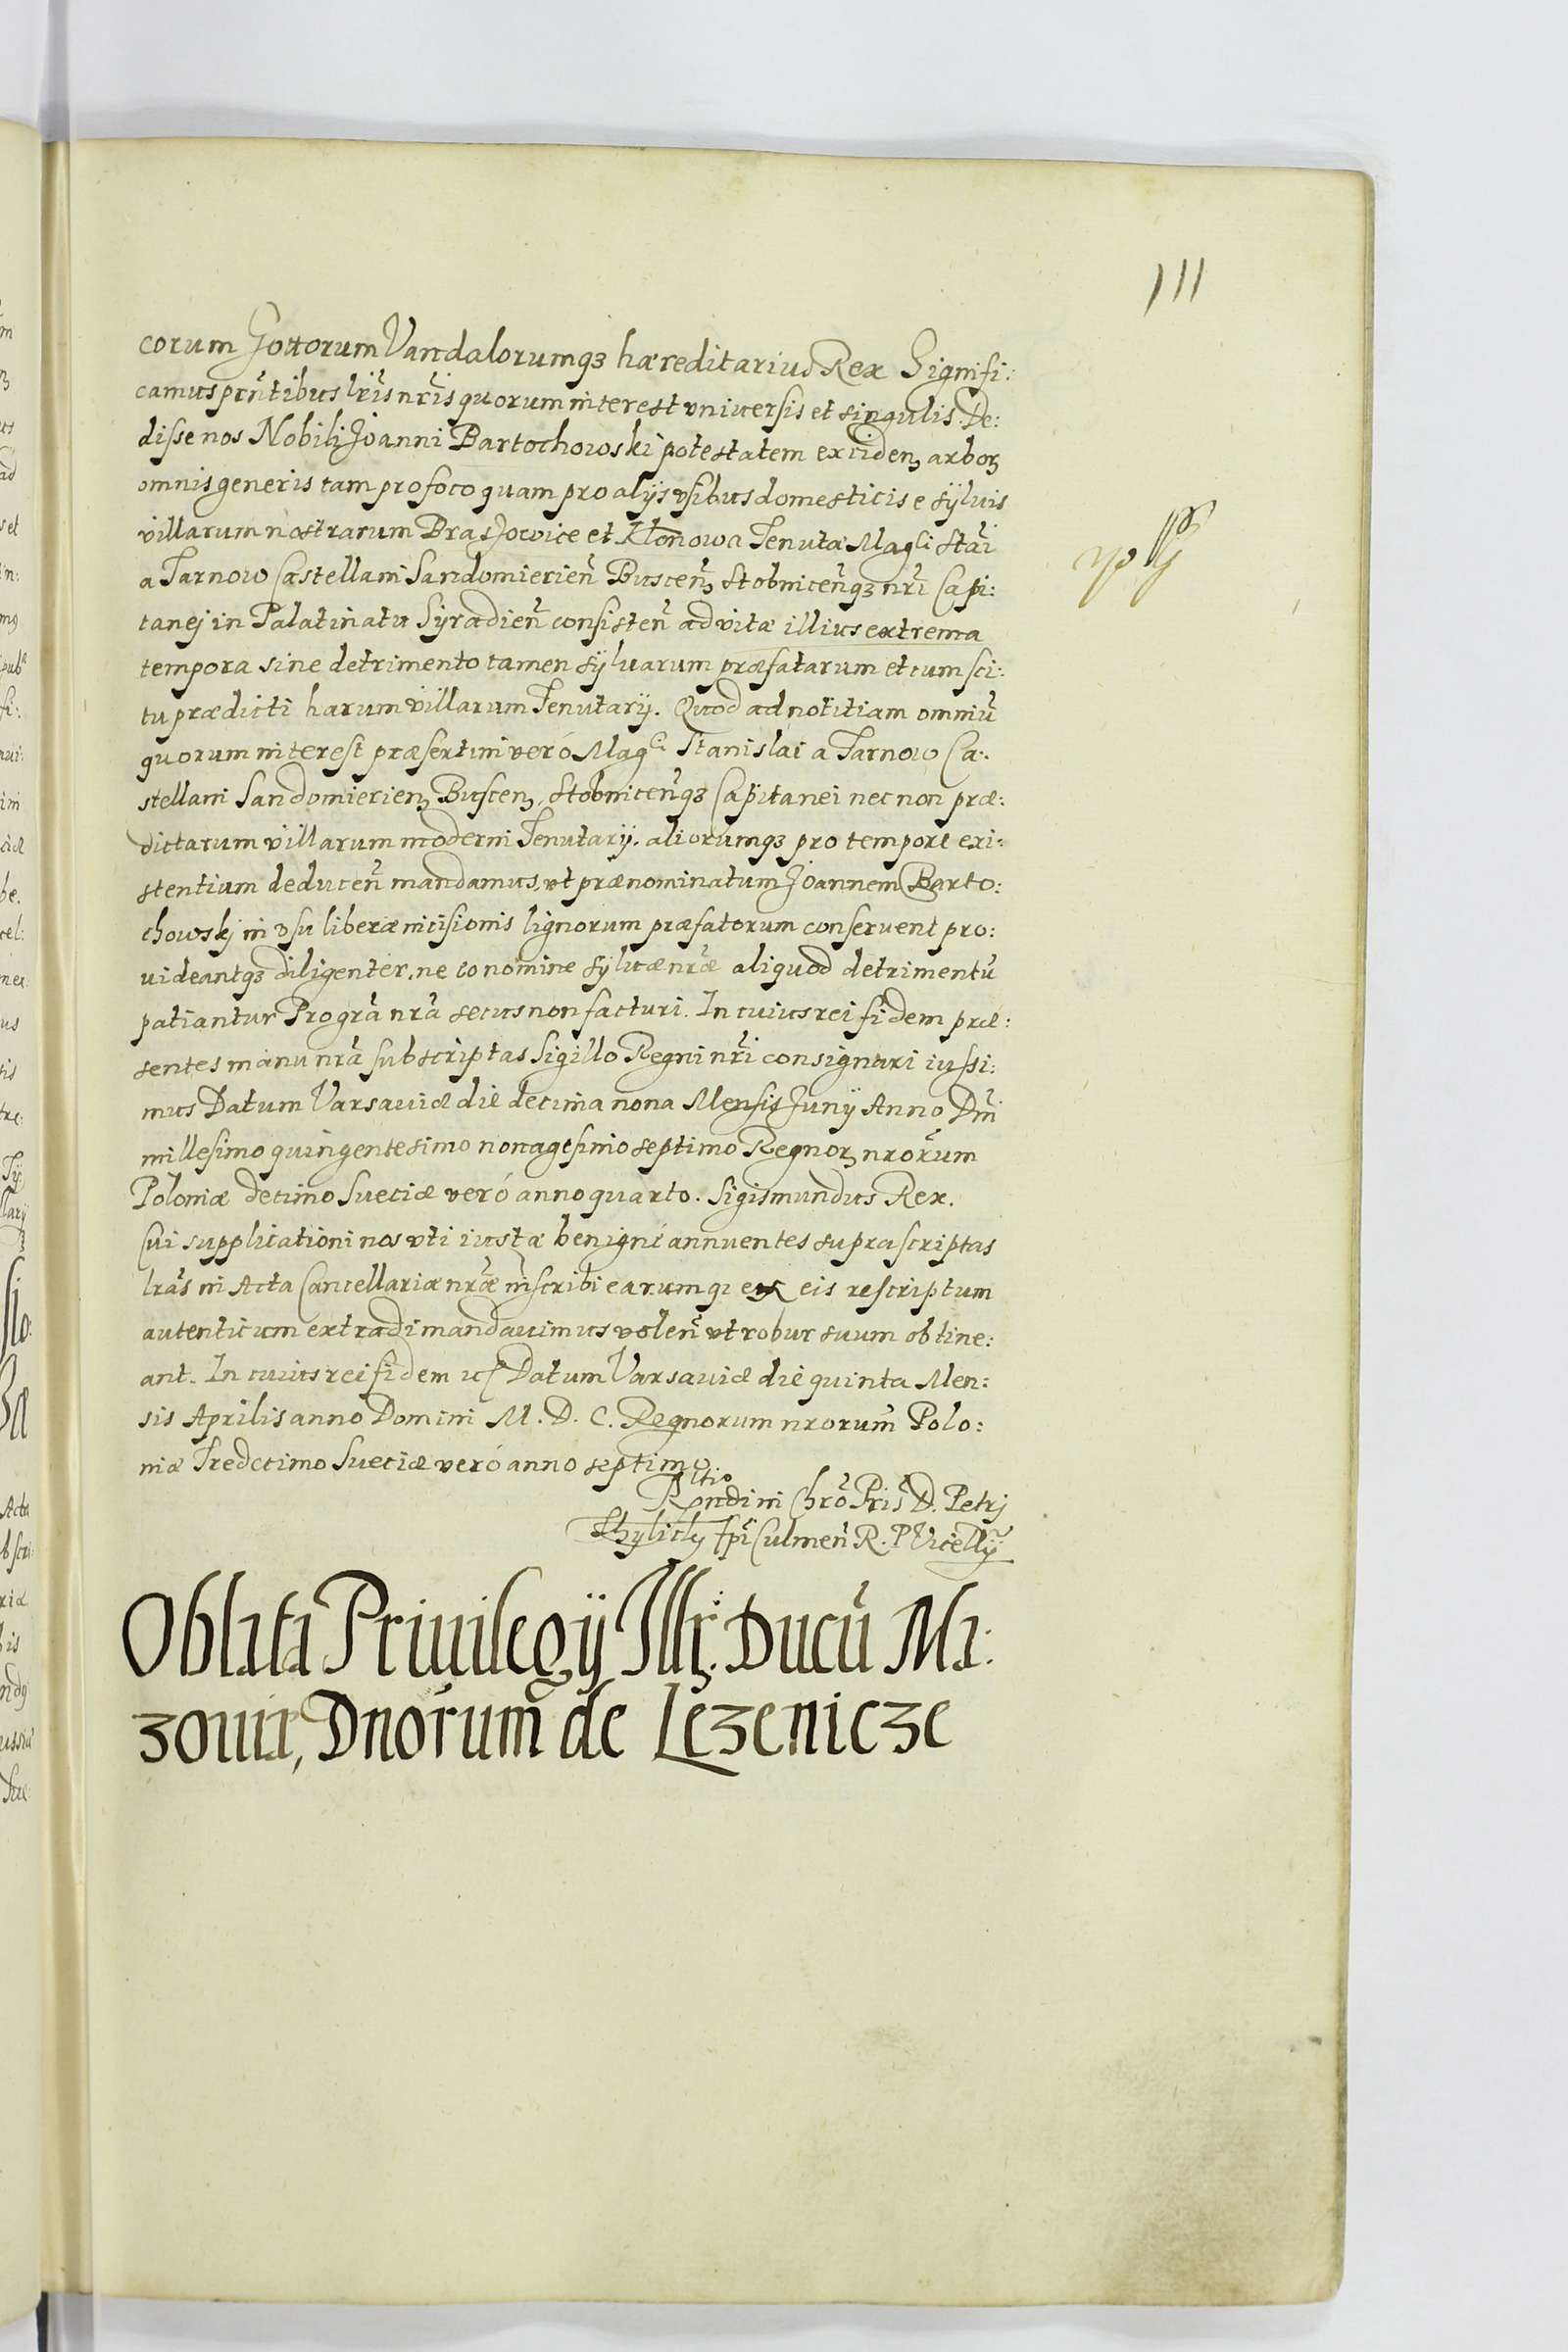 111
corum Gottorum Vandalorumqꝫ hæreditarius Rex Signifi:
camus pñtibus lris nris quorum interest vniuersis et singulis. De:
disse nos Nobili Joanni Bartochowski potestatem exciden₃ arboꝝ
omnis generis tam pro foco quam pro alÿs vsibus domesticis e sÿluis
villarum nostrarum et Klonowa Tenutæ Magci Stai
a Tarnow Castellani Sandomierien̄ Buscen₃ Stobnicen̄qꝫ nri Capi:
tanej in Palatinatu Syradien̄ consisten̄ ad vitæ illius extrema
tempora sine detrimento tamen sÿluarum præfatarum et cum sci:
tu prædicti harum villarum Tenutarÿ. Quod ad notitiam omniū
quorum interest præsertim veró Magci Stanislai a Tarnow Ca:
stellani Sandomierien₃ Buscen₃, Stobnicen̄qꝫ Capitanei nec non præ:
dictarum villarum moderni Tenutarÿ. aliorumqꝫ pro tempore exi:
stentium deducen̄ mandamus, vt prænominatum Joannem Barto:
chowskj in vsu liberæ incisionis lignorum præfatorum conseruent pro:
uideantqꝫ diligenter, ne eo nomine sÿluæ nræ aliquod detrimentū
patiantur Pro gra nra secus non facturi. In cuius rei fidem præ:
sentes manu nra subscriptas Sigillo Regni nri consignari iussi:
mus Datum Varsauiæ die decima nona Mensis Junÿ Anno Dni
millesimo quingentesimo nonagesimo septimo Regnoꝝ nrorum
Poloniæ decimo Sueciæ veró anno quarto. Sigismundus Rex.
Cui supplicationi nos vti iustæ benigné annuentes suprascriptas
lras in Acta Cancellariæ nræ inscribi earumqꝫ ex eis rescriptum
autenticum extradi mandauimus volen̄ vt robur suum obtine:
ant. In cuius rei fidem Datum Varsauiæ die quinta Men:
sis Aprilis anno Domini M. D. C. Regnorum nrorum Polo:
niæ Tredecimo Sueciæ veró anno septimo.
Rltio Rondi in Chro Pris D. Petrj
Thylicky Epi Culmen̄ R. P. Vicellÿ
Oblata Priuilegÿ Illr. Ducū Ma:
zouiæ, Dnorum de Lezenicze